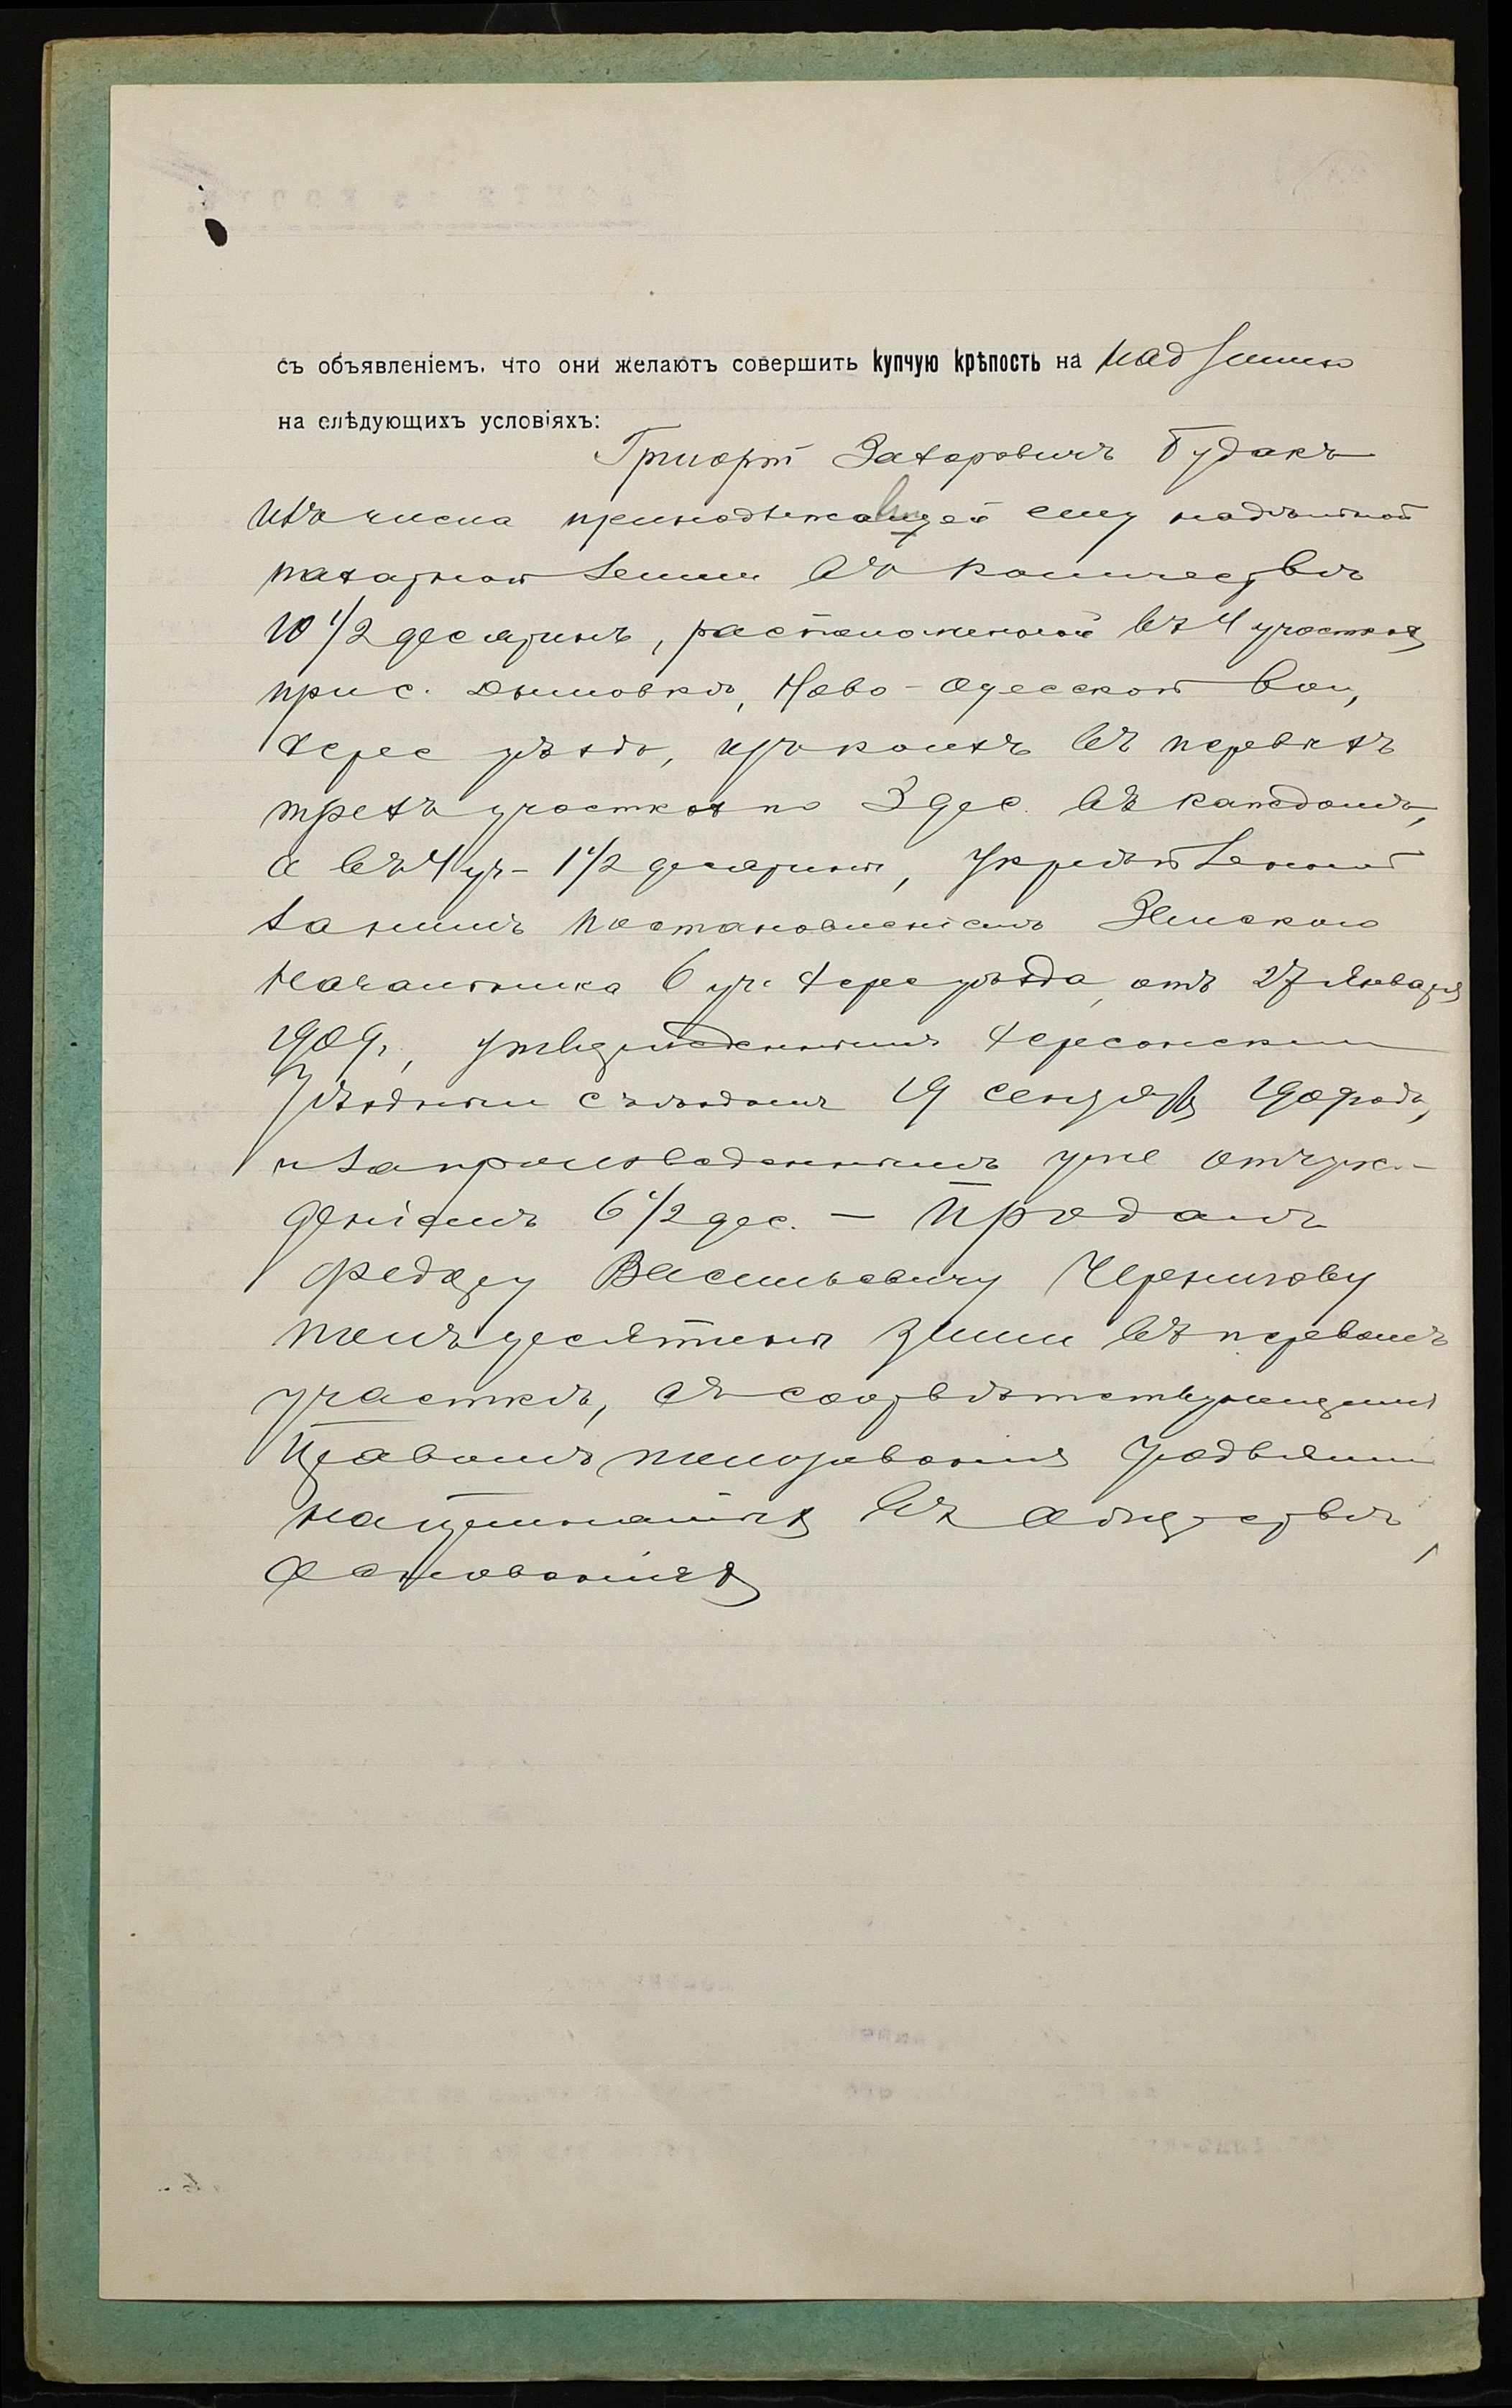 съ объявленіемъ, что они желаютъ совершить купчую крѣпость на над землю
на слѣдующихъ условіяхъ:
Григорій Захаровичъ Будакъ
изъ числа принадлежащей ему надѣльной
пахатной земли въ количествѣ
10 1/2 десятинъ, расположенной въ 4 участкахъ
при с. Дымовкѣ, Ново-Одесской вол,
Херс уѣзда, изъ коихъ въ первыхъ
трехъ участкахъ по 3 дес. въ каждомъ,
а въ 4 уч- 1 1/2 десятины, укрѣпленной
за нимъ постановленіемъ Земскаго
Начальника 6 уч. Херс уѣзда, отъ 27 Января
1909г, утвержденнымъ Херсонскимъ
Уѣзднымъ съѣздомъ 19 сентября 1909 года,
и за произведеннымъ уже отчуж-
деніемъ 6 1/2 дес. — продалъ
Федору Васильевичу Чернигову
десятины земли въ первомъ
участкѣ, съ соотвѣтствующимъ
правомъ пользованія угодьями
на въ обществѣ
основаніяхъ